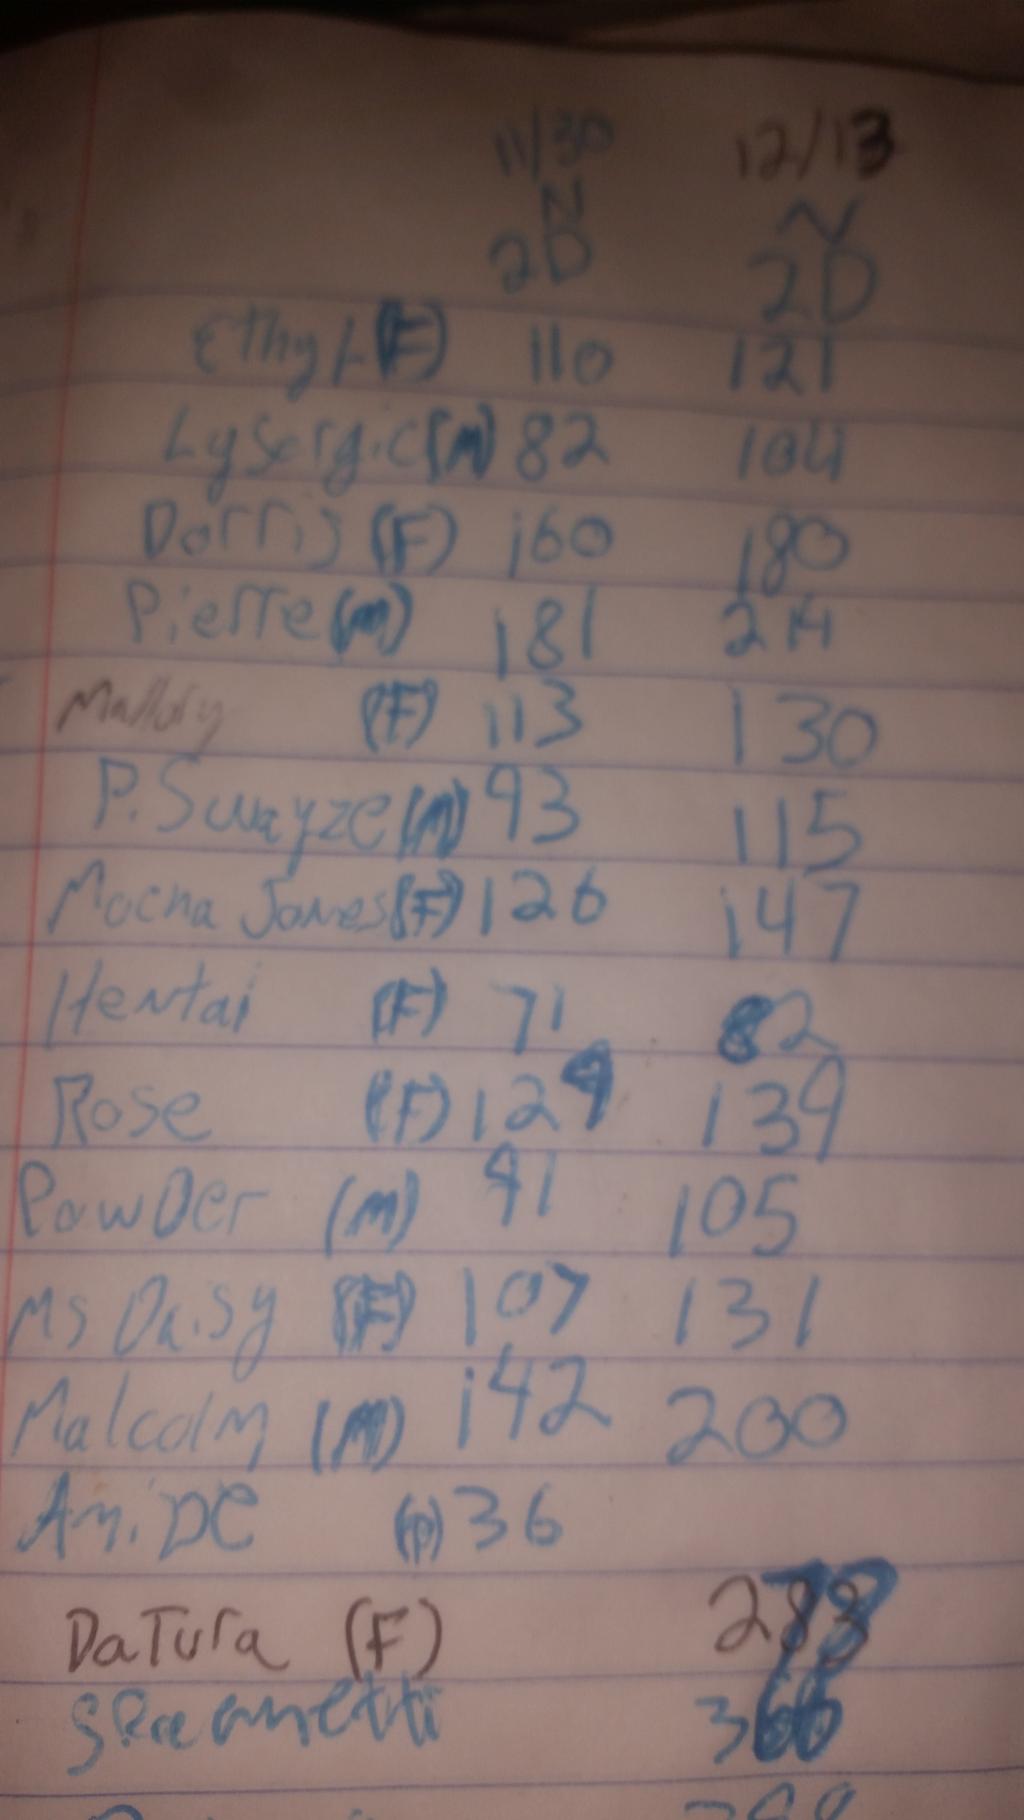 11/30 12/13
N N
2D 2D
Ethyl (F) 110 121
Lysergic (M) 82 104
Dorris (F) 160 180
Pierre (M) 181 214
Mallory (F) 113 130
P. Swayze (M) 93 115
Mocha Jones (F) 126 147
Hentai (F) 71 82
Rose (F) 129 139
PowDer (M) 91 105
Ms Daisy (F) 107 131
Malcolm (M) 142 200
AmiDe 36
DaTura (F)